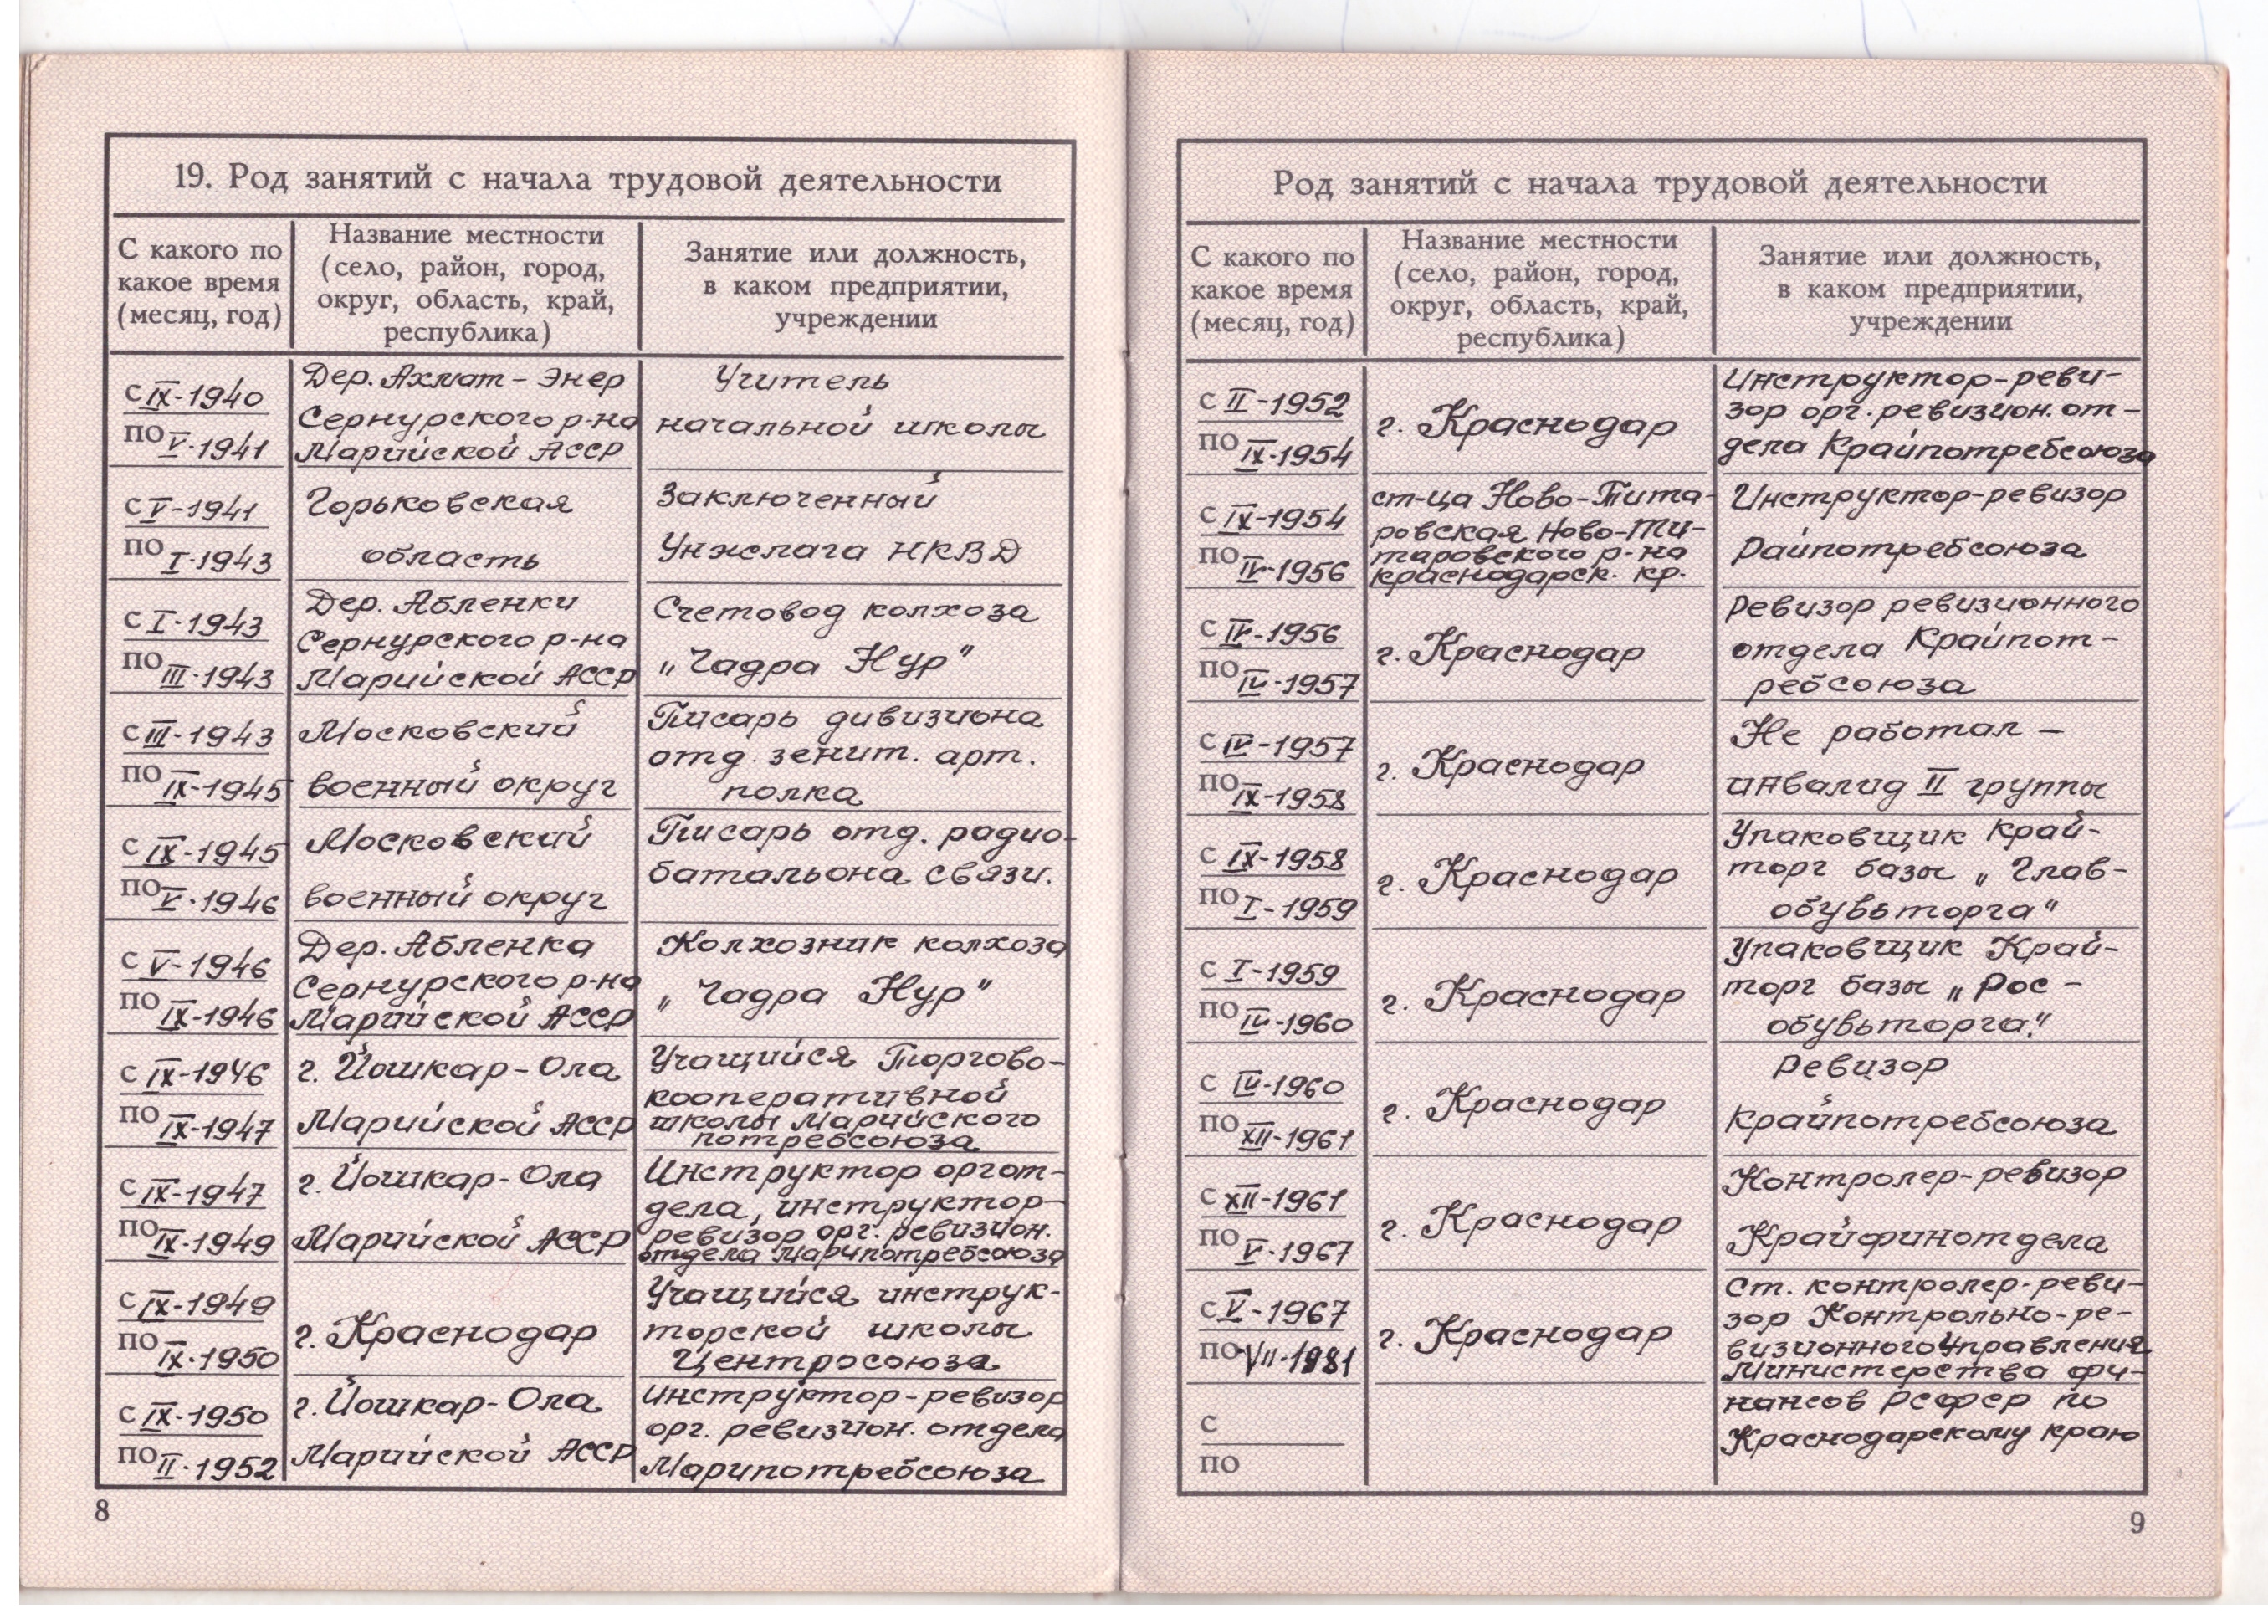 19. Род занятий с начала трудовой деятельности
С какого по
какое время
(месяц, год)
Название местности
(село, район, город,
округ, область, край,
республика)
Занятие или должность,
в каком предприятии,
учреждении
с IX-1940
по V-1941
Дер. Ахмат-Энер
Сернурского р-на
Марийской АССР
Учитель
начальной школы
с V-1941
по I-1943
Горьковская
область
Заключенный
Унжлага НКВД
с I-1943
по III-1943
Дер. Абленки
Сернурского р-на
Марийской АССР
Счетовод колхоза
„Чадра Нур"
с III-1943
по IX-1945
Московский
военный округ
Писарь дивизиона
отд. зенит. арт.
полка
с IX-1945
по V-1946
Московский
военный округ
Писарь отд. радио-
батальона связи.
с V-1946
по IX-1946
Дер. Абленка
Сернурского р-на
Марийской АССР
Колхозник колхоза
„Чадра Нур"
с IX-1946
по IX-1947
г. Йошкар-Ола
Марийской АССР
Учащийся Торгово-
кооперативной
школы Марийского
потребсоюза
с IX-1947
по IX-1949
г. Йошкар-Ола
Марийской АССР
Инструктор оргот-
дела, инструктор-
ревизор орг. ревизион.
отдела Марипотребсоюза
с IX-1949
по IX-1950
г. Краснодар
Учащийся инструк-
торской школы
Центросоюза
с IX-1950
по II-1952
г. Йошкар-Ола
Марийской АССР
Инструктор-ревизор
орг. ревизион. отдела
Марипотребсоюза
8
Род занятий с начала трудовой деятельности
С какого по
какое время
(месяц, год)
Название местности
(село, район, город,
округ, область, край,
республика)
Занятие или должность,
в каком предприятии,
учреждении
с II-1952
по IX-1954
г. Краснодар
Инструктор-реви-
зор орг. ревизион. от-
дела Крайпотребсоюза
с IX-1954
по IV-1956
ст-ца Ново-Тита-
ровская Ново-Ти-
таровского р-на
краснодарск. кр.
Инструктор-ревизор
Райпотребсоюза
с IV-1956
по IV-1957
г. Краснодар
Ревизор ревизионного
отдела Крайпот-
ребсоюза
с IV-1957
по IX-1958
г. Краснодар
Не работал -
инвалид II группы
с IX-1958
по I-1959
г. Краснодар
Упаковщик край-
торг базы „Глав-
обувьторга"
с I-1959
по IV-1960
г. Краснодар
Упаковщик Край-
торг базы „Рос-
обувьторга."
с IV-1960
по XII-1961
г. Краснодар
Ревизор
крайпотребсоюза
с XII-1961
по V-1967
г. Краснодар
Контролер-ревизор
Крайфинотдела
с V-1967
по VII-1981
г. Краснодар
Ст. контролер-реви-
зор Контрольно-ре-
визионного Управления
Министерства фи-
нансов РСФСР по
Краснодарскому краю
с
по
9